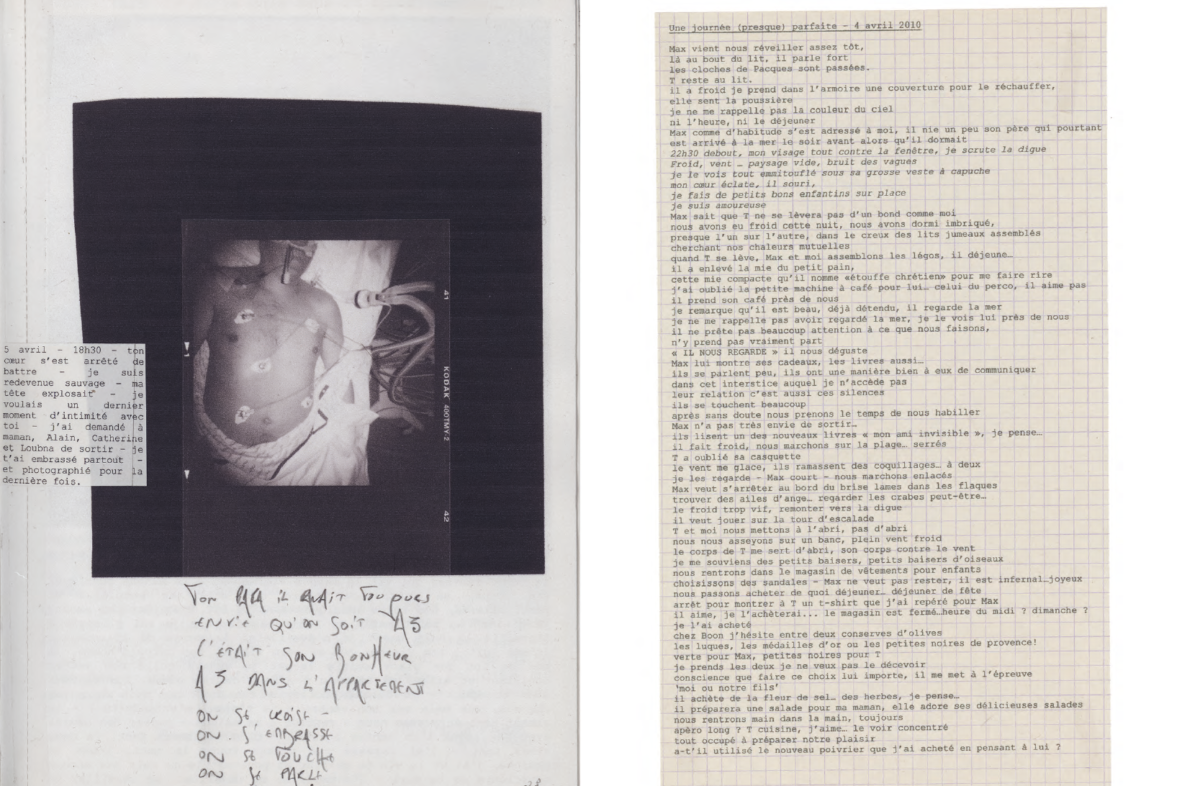 5 avril - 18h30 - ton
cœur s'est arrêté de
battre - je suis
redevenue sauvage - ma
tête explosait - je
voulais un dernier
moment d'intimité avec
toi - j'ai demandé à
maman, Alain, Catherine
et Loubna de sortir - je
t'ai embrassé partout -
et photographié pour la
dernière fois.
41
KODAK 400TMY-2
42
TON PAPA il AVAIT TOUJOURS
ENVIE QU'ON SOIT A3
C'ÉTAIT SON BONHEUR
A 3 DANS L'APPARTEMENT
ON SE CROISE -
ON S'EMBRASSE
ON SE TOUCHE
ON SE PARLE
Une journée (presque) parfaite - 4 avril 2010
Max vient nous réveiller assez tôt,
Là au bout du lit, il parle fort
les cloches de Pacques sont passées.
T reste au lit.
il a froid je prend dans l'armoire une couverture pour le réchauffer,
elle sent la poussière
je ne me rappelle pas la couleur du ciel
ni l'heure, ni le déjeuner
Max comme d'habitude s'est adressé à moi, il nie un peu son père qui pourtant
est arrivé à la mer le soir avant alors qu'il dormait
22h30 debout, mon visage tout contre la fenêtre, je scrute la digue
Froid, vent … paysage vide, bruit des vagues
je le vois tout emmitouflé sous sa grosse veste à capuche
mon cœur éclate, il souri,
je fais de petits bons enfantins sur place
je suis amoureuse
Max sait que T ne se lèvera pas d'un bond comme moi
nous avons eu froid cette nuit, nous avons dormi imbriqué,
presque l'un sur l'autre, dans le creux des lits jumeaux assemblés
cherchant nos chaleurs mutuelles
quand T se lève, Max et moi assemblons les légos, il déjeune…
il a enlevé la mie du petit pain,
cette mie compacte qu'il nomme «étouffe chrétien» pour me faire rire
j'ai oublié la petite machine à café pour lui… celui du perco, il aime pas
il prend son café près de nous
je remarque qu'il est beau, déjà détendu, il regarde la mer
je ne me rappelle pas avoir regardé la mer, je le vois lui près de nous
il ne prête pas beaucoup attention à ce que nous faisons,
n'y prend pas vraiment part
« IL NOUS REGARDE » il nous déguste
Max lui montre ses cadeaux, les livres aussi…
ils se parlent peu, ils ont une manière bien à eux de communiquer
dans cet interstice auquel je n'accède pas
leur relation c'est aussi ces silences
ils se touchent beaucoup
après sans doute nous prenons le temps de nous habiller
Max n'a pas très envie de sortir…
ils lisent un des nouveaux livres « mon ami invisible », je pense…
il fait froid, nous marchons sur la plage… serrés
T a oublié sa casquette
le vent me glace, ils ramassent des coquillages… à deux
je les regarde - Max court - nous marchons enlacés
Max veut s'arrêter au bord du brise lames dans les flaques
trouver des ailes d'ange… regarder les crabes peut-être…
le froid trop vif, remonter vers la digue
il veut jouer sur la tour d'escalade
T et moi nous mettons à l'abri, pas d'abri
nous nous asseyons sur un banc, plein vent froid
le corps de T me sert d'abri, son corps contre le vent
je me souviens des petits baisers, petits baisers d'oiseaux
nous rentrons dans le magasin de vêtements pour enfants
choisissons des sandales - Max ne veut pas rester, il est infernal…joyeux
nous passons acheter de quoi déjeuner… déjeuner de fête
arrêt pour montrer à T un t-shirt que j'ai repéré pour Max
il aime, je l'achèterai... le magasin est fermé…heure du midi ? dimanche ?
je l'ai acheté
chez Boon j'hésite entre deux conserves d'olives
les luques, les médailles d'or ou les petites noires de provence!
verte pour Max, petites noires pour T
je prends les deux je ne veux pas le décevoir
conscience que faire ce choix lui importe, il me met à l'épreuve
'moi ou notre fils'
il achète de la fleur de sel… des herbes, je pense…
il préparera une salade pour ma maman, elle adore ses délicieuses salades
nous rentrons main dans la main, toujours
apéro long ? T cuisine, j'aime… le voir concentré
tout occupé à préparer notre plaisir
a-t'il utilisé le nouveau poivrier que j'ai acheté en pensant à lui ?